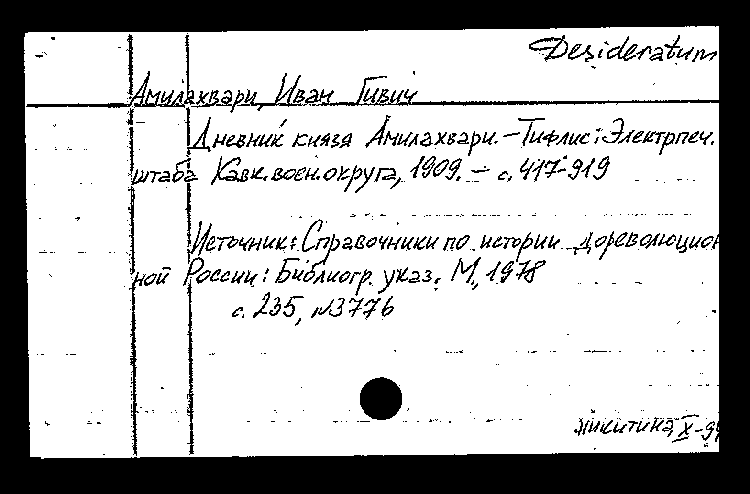 Desideratum
Амилахвари, Иван Гивич
Дневник князя Амилахвари.—Тифлис: Электрпеч.
штаба Кавк. воен. округа, 1909. — с. 417-919
Источник: Справочники по истории дореволюцион
ной России: Библиогр. указ. М., 1978
с. 235, №3776
никитина, X-9